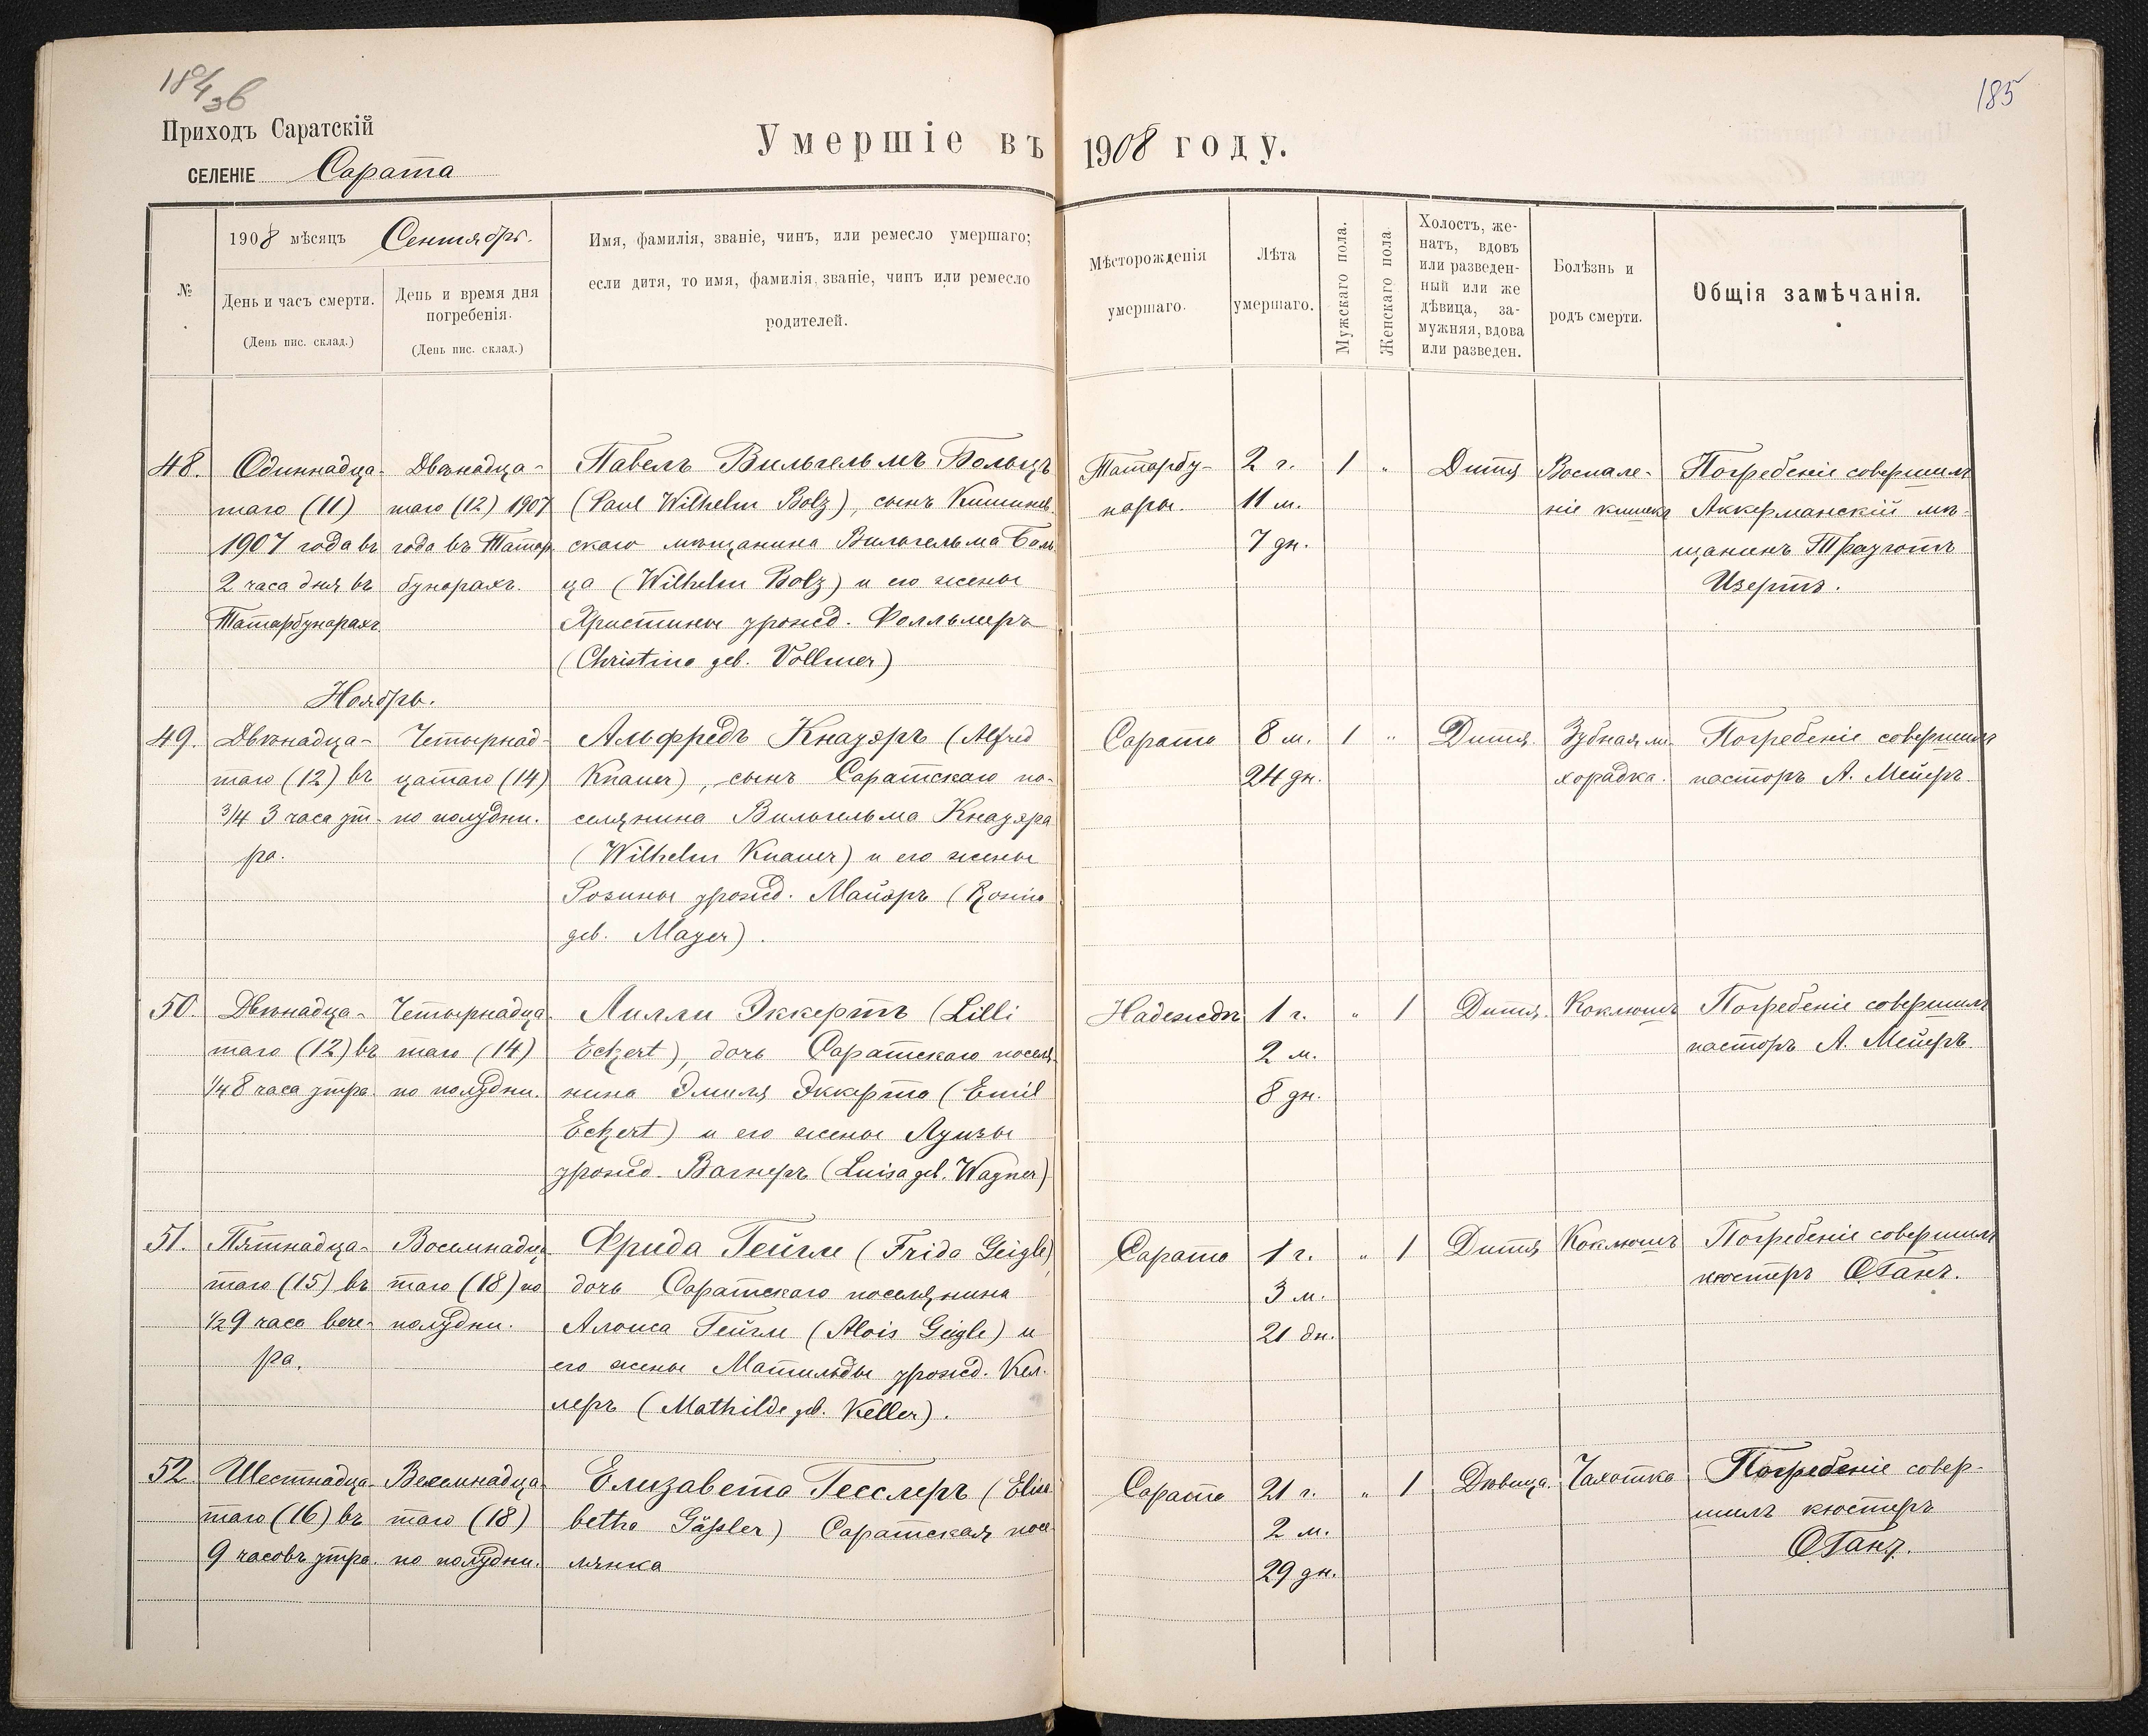 184 зв
185
Приходъ Саратскій
СЕЛЕНІЕ Сарата
Умершіе въ 1908 году.
№
1908 мѣсяцъ Сентябрь.
День и часъ смерти.
(День пис. склад.)
День и время дня
погребенія.
(День пис. склад.)
Имя, фамилія, званіе, чинъ, или ремесло умершаго;
если дитя, то имя, фамилія, званіе, чинъ или ремесло
родителей.
Мѣсторожденія
умершаго.
Лѣта
умершаго.
Мужскаго пола.
Женскаго пола
Холостъ, же-
натъ, вдовъ
или разведен-
ный или же
дѣвица, за-
мужняя, вдова
или разведен.
Болѣзнь и
родъ смерти.
Общія замѣчанія.
48.
Одиннадца-
таго (11)
1907 года въ
2 часа дня въ
Татарбунарахъ
Двѣнадца-
таго (12) 1907
года въ Татар
бунарахъ.
Павелъ Вильгельмъ Больцъ
(Paul Wilhelm Bolz), сынъ Кишинев-
скаго мѣщанина Вильгельма Боль
ца (Wilhelm Bolz) и его жены
Христины урожд. Фолльмеръ
(Christina geb. Vollmer)
Татарбу-
нары.
2 г.
11 м.
7 дн.
1 "
Дитя
Воспале-
ніе кишекъ
Погребеніе совершилъ
Аккерманскій мѣ-
щанинъ Трауготъ
Изертъ.
Ноябрь.
49.
Двѣнадца-
таго (12) въ
3/4 3 часа ут-
ра.
Четырнад-
цатаго (14)
по полудни.
Альфредъ Кнауэръ (Alfred
Knauer), сынъ Саратскаго по-
селянина Вильгельма Кнауэра
(Wilhelm Knauer) и его жены
Розины урожд. Майэръ (Rosina
geb. Mayer).
Сарата
8 м.
24 дн.
1 "
Дитя.
Зубная ли-
хорадка.
Погребеніе совершилъ
пасторъ А. Мейеръ.
50.
Двѣнадца-
таго (12) въ
1/4 8 часа утра.
Четырнадца
таго (14)
по полудни.
Лилли Эккертъ (Lilli
Eckert), дочь Саратскаго поселя
нина Эмиля Эккерта (Emil
Eckert) и его жены Луизы
урожд. Вагнеръ (Luisa geb. Wagner)
Надежда
1 г.
2 м.
8 дн.
" 1
Дитя.
Коклюшъ
Погребеніе совершилъ
пасторъ А. Мейеръ.
51.
Пятнадца-
таго (15) въ
1/2 9 часа вече-
ра.
Восемнадца
таго (18) по
полудни.
Фрида Гейгле (Frida Geigle)
дочь Саратскаго поселянина
Алоиса Гейгле (Alois Geigle) и
его жены Матильды урожд. Кел-
леръ (Mathilde geb. Keller).
Сарата
1 г.
3 м.
21 дн.
" 1
Дитя
Коклюшъ
Погребеніе совершилъ
кюстеръ
52
Шестнадца-
таго (16) въ
9 часовъ утра.
Восемнадца-
таго (18)
по полудни.
Елизавета Гесслеръ (Elisa
betha Gäßler) Саратская посе-
лянка
Сарата
21 г.
2 м.
29 дн.
" 1
Дѣвица.
Чахотка
Погребеніе совер-
шилъ кюстеръ